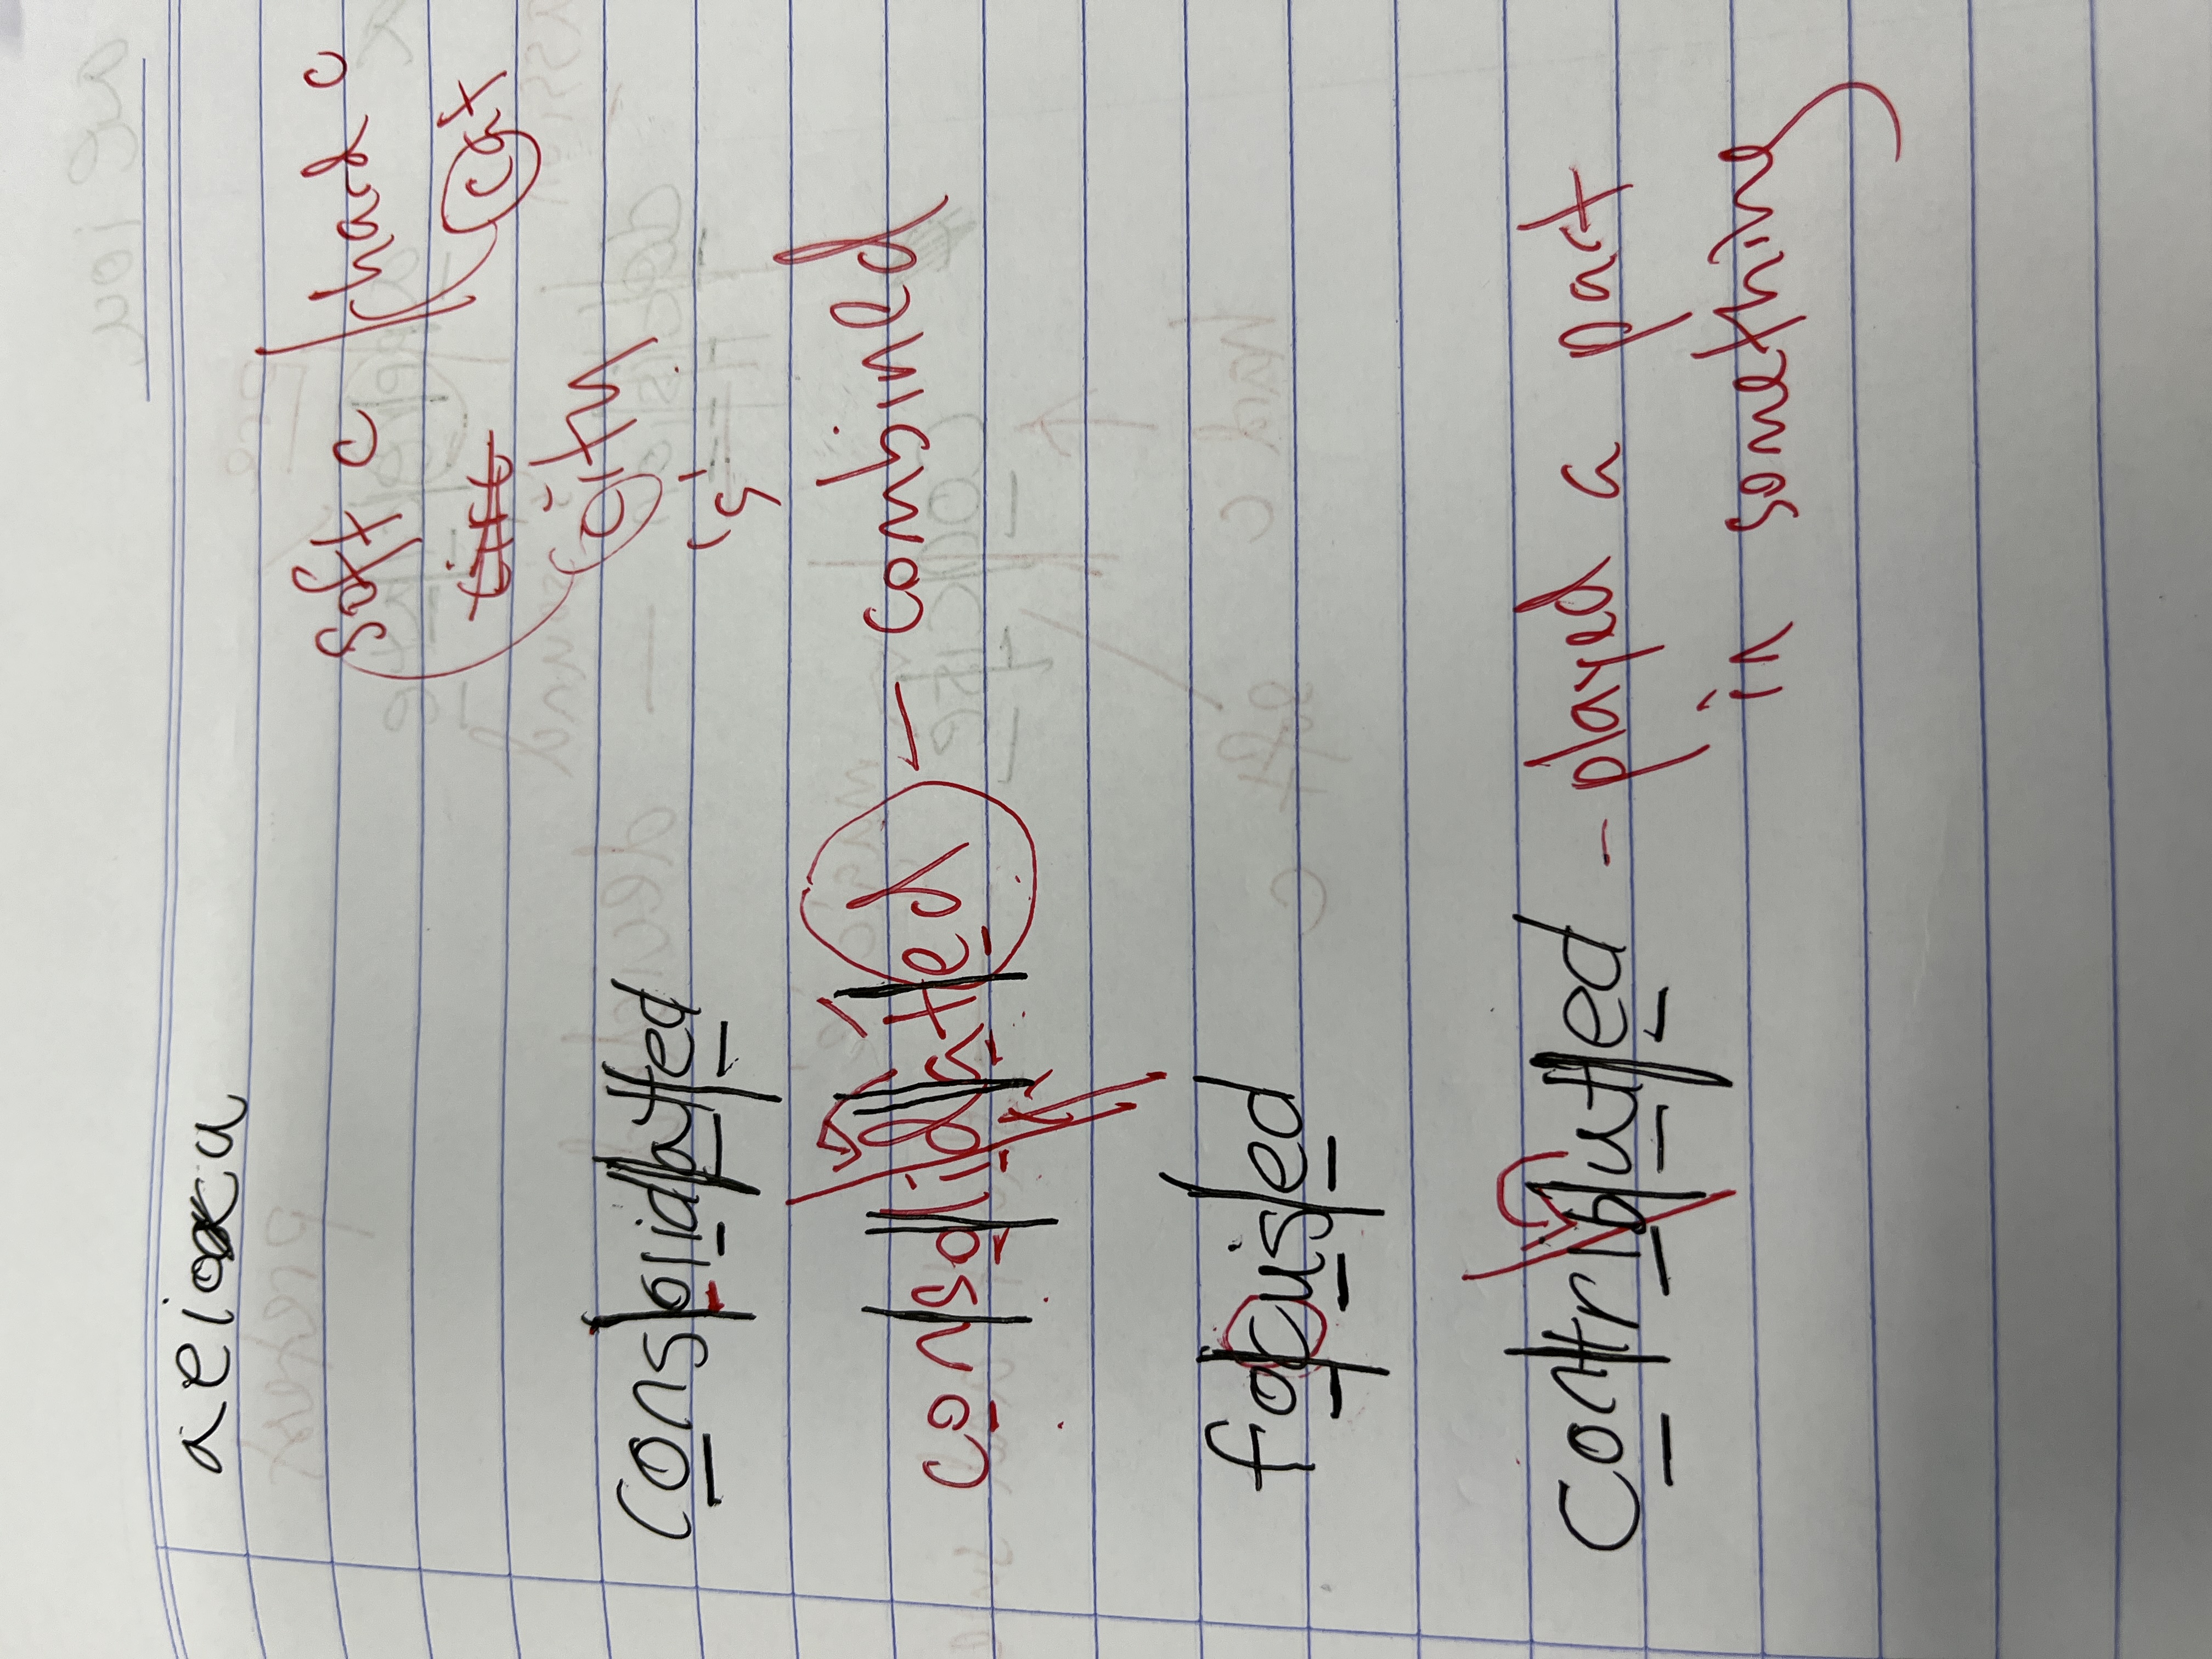 a e i o u
soft c hard c
city cat
is
consolidated
consolidated – combined
focused
contributed - played a part
in something